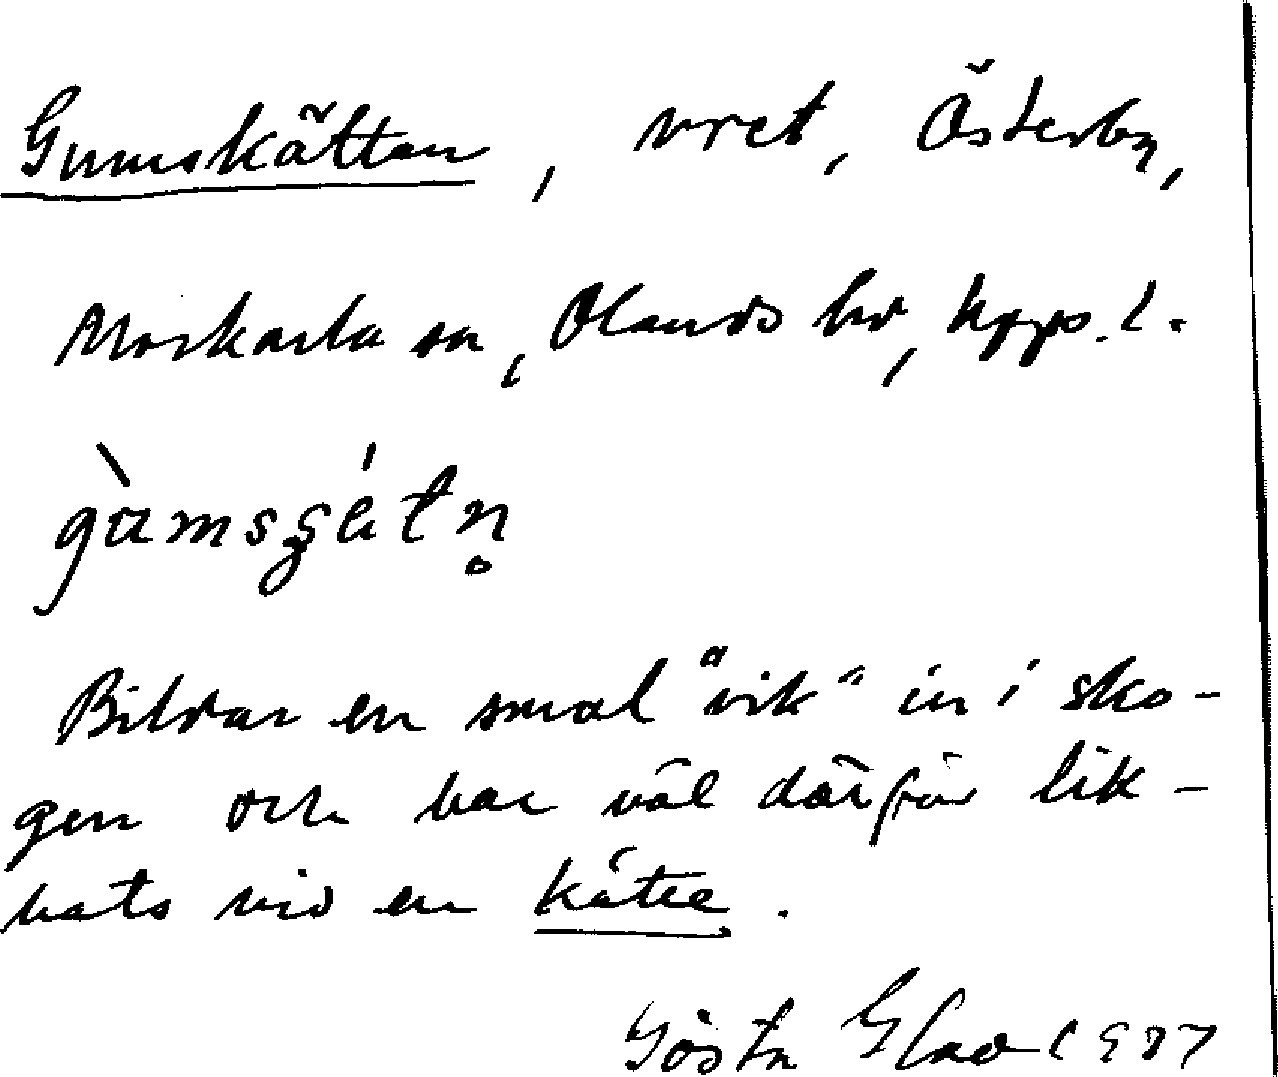 Gumskättan, vret, Österby,
Morkarla sn, Olands hd, Upps. l.
gùmsʂétn̥
Bildar en smal "vik" in i sko-
gen och har väl därför lik-
nats vid en kätte.
Gösta Glad 1937